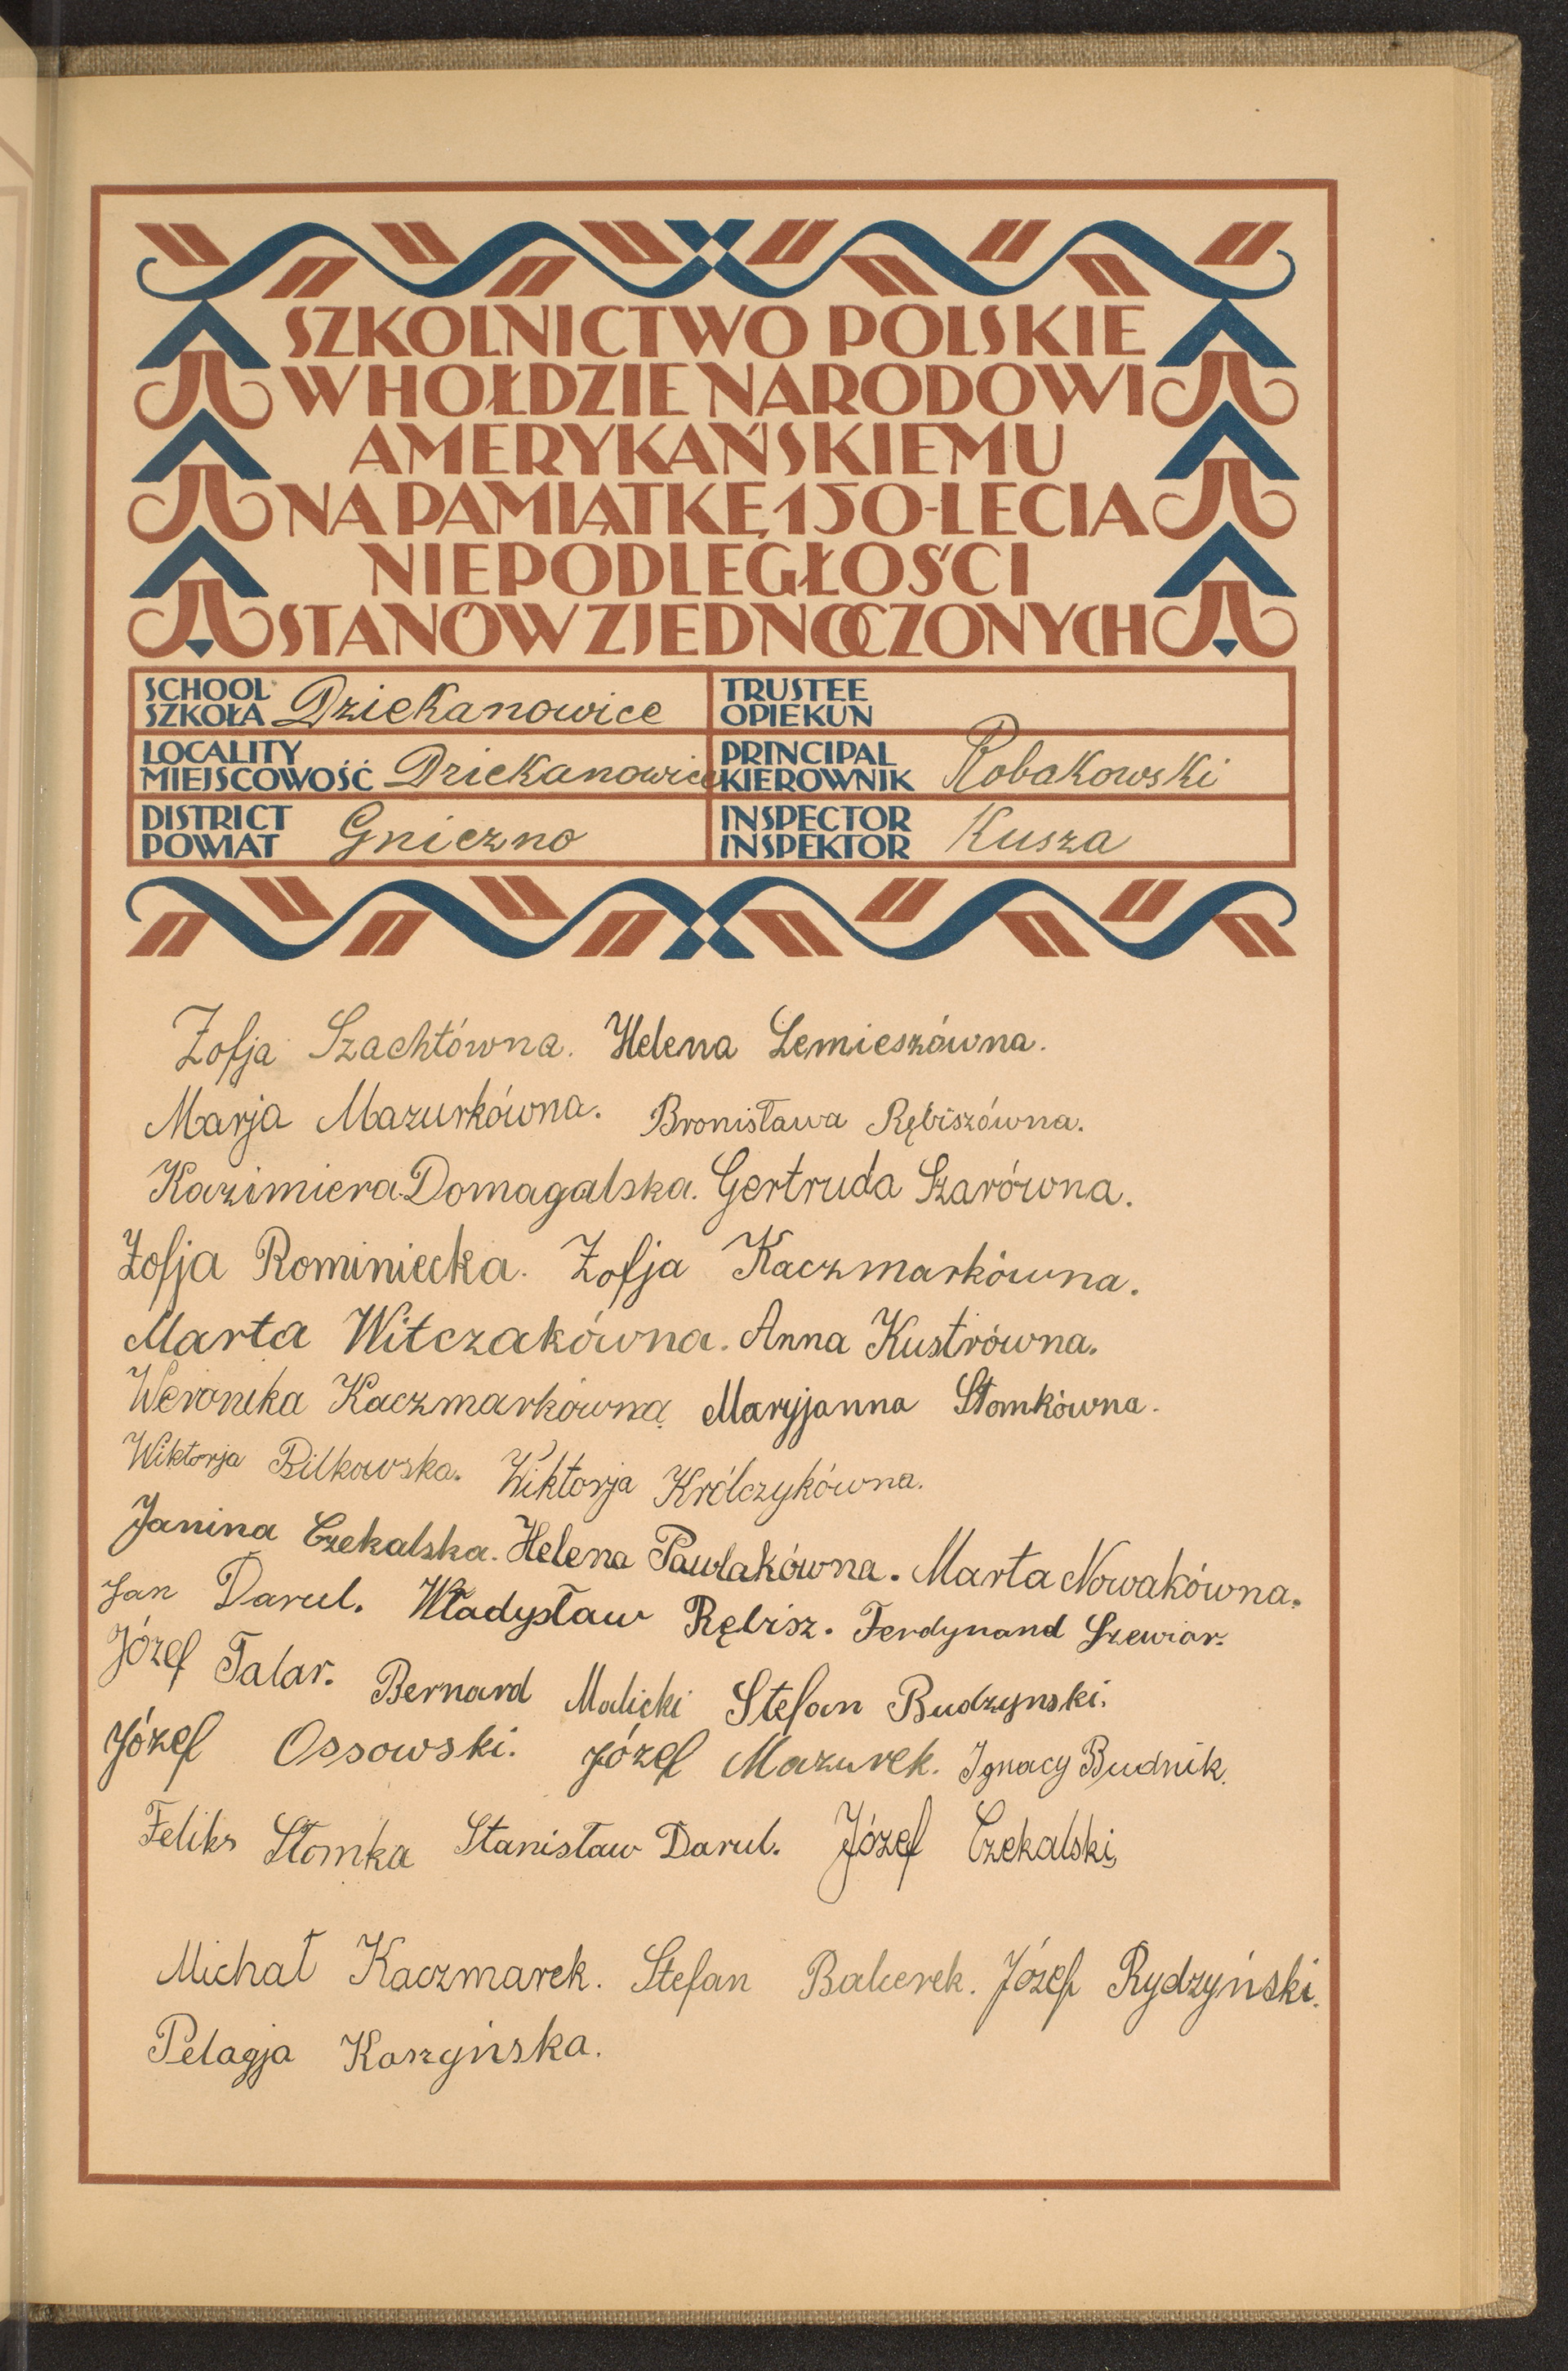 SZKOLNICTWO POLSKIE
W HOŁDZIE NARODOWI
AMERYKAŃSKIEMU
NA PAMIĄTKĘ 150-LECIA
NIEPODLEGŁOŚCI
STANÓW ZJEDNOCZONYCH
SCHOOL
SZKOŁA Dziekanowice
TRUSTEE
OPIEKUN
LOCALITY
MIEJSCOWOŚĆ Dziekanowice
PRINCIPAL
KIEROWNIK Robakowski
DISTRICT
POWIAT Gniezno
INSPECTOR
INSPEKTOR Kusza
Zofja Szachtówna. Helena Lemieszówna.
Marja Mazurkówna. Bronisława Rębiszówna.
Kazimiera Domagalska. Gertruda Szarówna.
Zofja Rominiecka. Zofja Kaczmarkówna.
Marta Witczakówna. Anna Kustrówna.
Weronika Kaczmarkówna. Maryjanna Słomkówna.
Wiktorja Bilkowska. Wiktorja Królczykówna.
Janina Czekalska. Helena Pawlakówna. Marta Nowakówna.
Jan Darul. Władysław Rębisz. Ferdynand Szewior.
Józef Talar. Bernard Malicki Stefan Budzynski.
Józef Ossowski. Józef Mazurek. Ignacy Budnik.
Feliks Słomka Stanisław Darul. Józef Czekalski,
Michał Kaczmarek. Stefan Balcerek. Józef Rydzyński.
Pelagja Koszyńska.